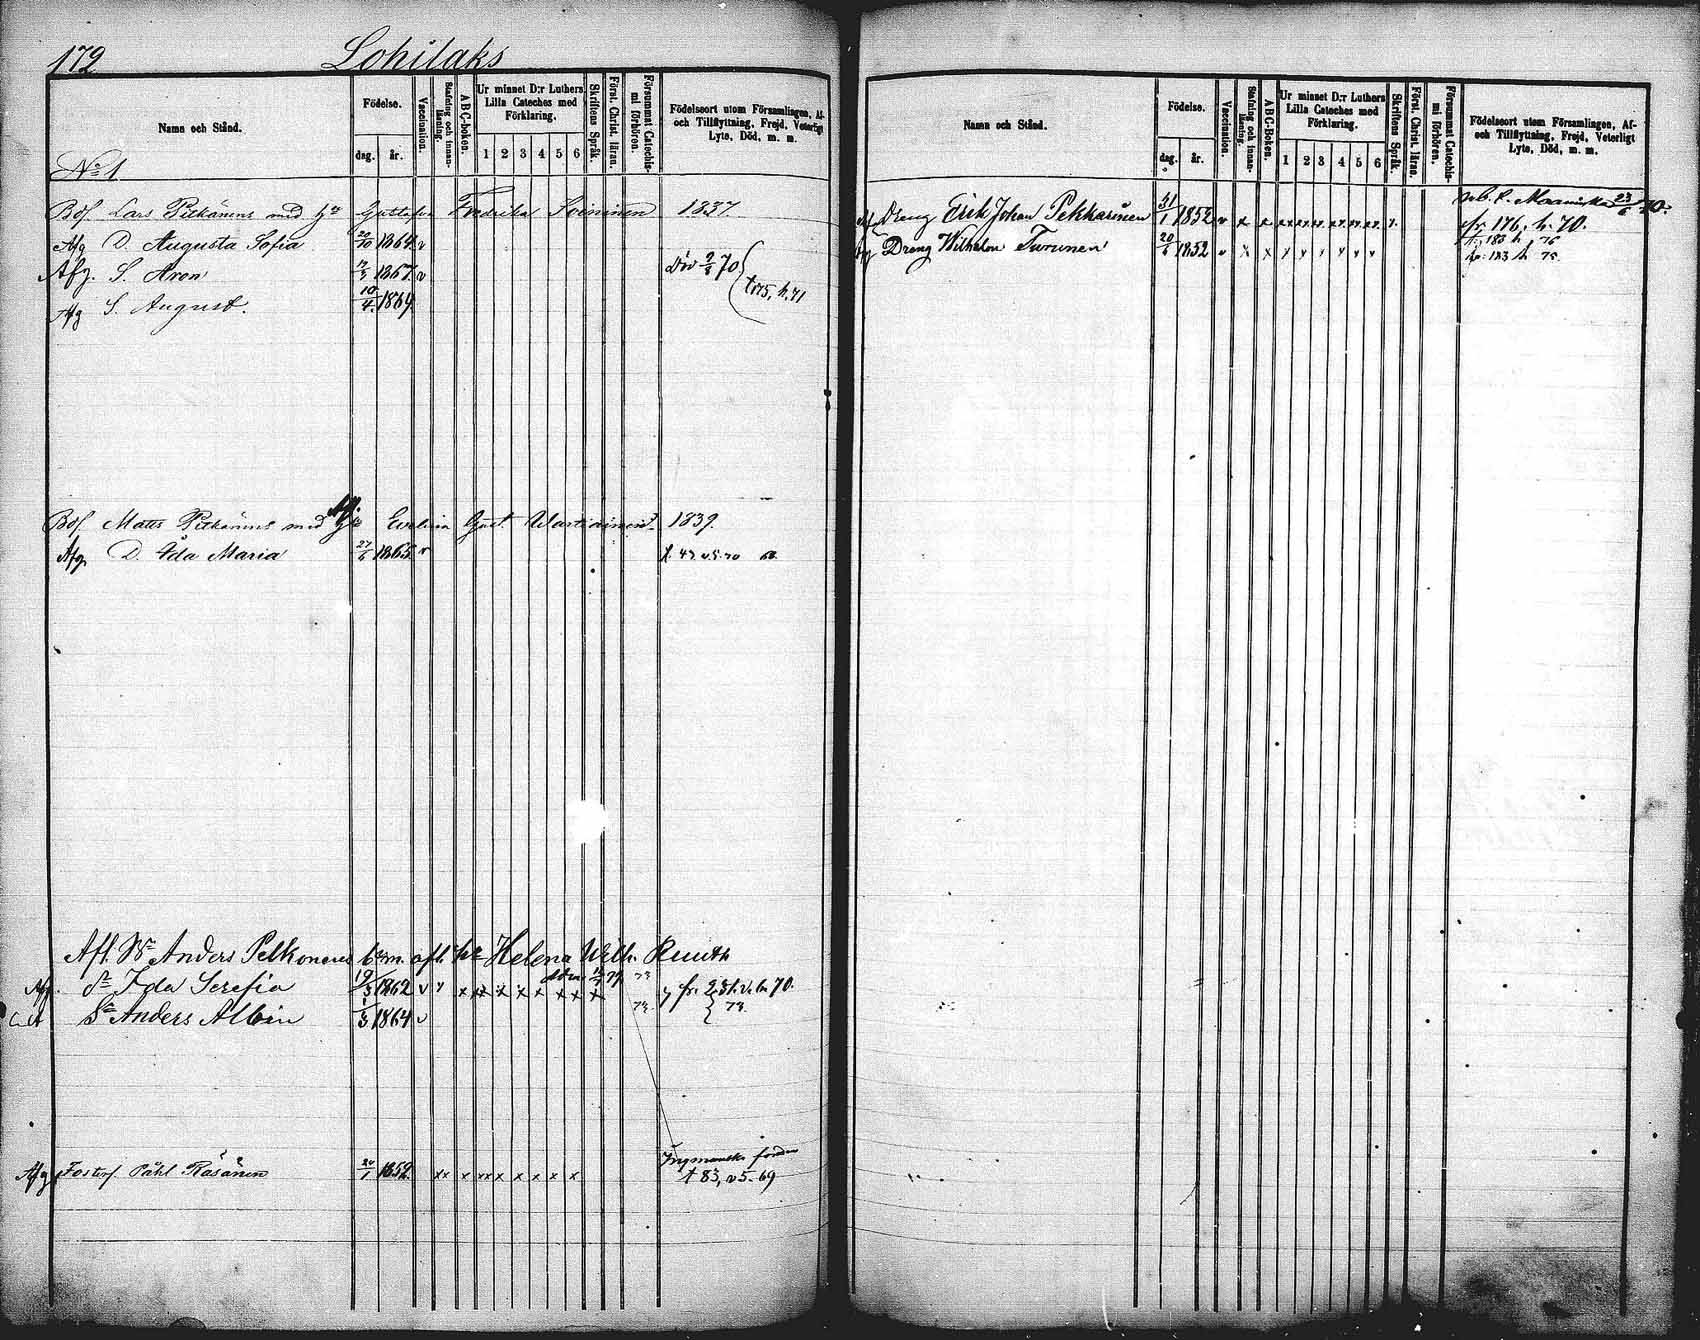 172 Lohilaks
Namn och Stånd.
Födelse.
dag. år.
Vaccination.
Stafning och innanläsning.
ABC-boken.
Ur minnet D:r Luthers Lilla Cateches med Förklaring.
1 2 3 4 5 6
Skriftens Språk.
Först. Christ. läran.
Försummat Catechismi förhören.
Födelseort utom Församlingen, Af- och Tillflyttning, Frejd, Veterligt Lyte, Död, m. m.
No 1
Bdf. Lars Pitkänens med Fredrika Soininen 1837.
Afg D. Augusta Sofia 20/10 1864 v
Afg. S. Aron 1867 v Död 70
Afg S. August. 10/4 1869. t. 175, h. 71
Bdf. Matts Pitkänens med Evelina Gust. Wartiainen 1839.
Afg D. Ida Maria 27/6 1865 v
Afl. Anders Pelkonens afl. Helena Wilh. Ruuth
Afg. Dr Ida Serefia 19/3 1862 v v x x x x x x x x 73 fr. 70.
Sn Anders Albin 1/3 1864 v 73. 73.
Afg Fosters. Påhl Räsänen 1852 xx x xx x x x x x t 83, v 5-69
Namn och Stånd.
Födelse.
dag. år.
Vaccination.
Stafning och innanläsning.
ABC-boken.
Ur minnet D:r Luthers Lilla Cateches med Förklaring.
1 2 3 4 5 6
Skriftens Språk.
Först. Christ. läran.
Försummat Catechismi förhören.
Födelseort utom Församlingen, Af- och Tillflyttning, Frejd, Veterligt Lyte, Död, m. m.
Afg Dreng Erik Johan Pekkarinen 31/1 1852 v x x Maaninka 23/6 70.
fr. 176, h. 70.
Afg Dreng Wilhelm Turunen 1852 v x x x x x x x x 183 h 76
183 h 75.